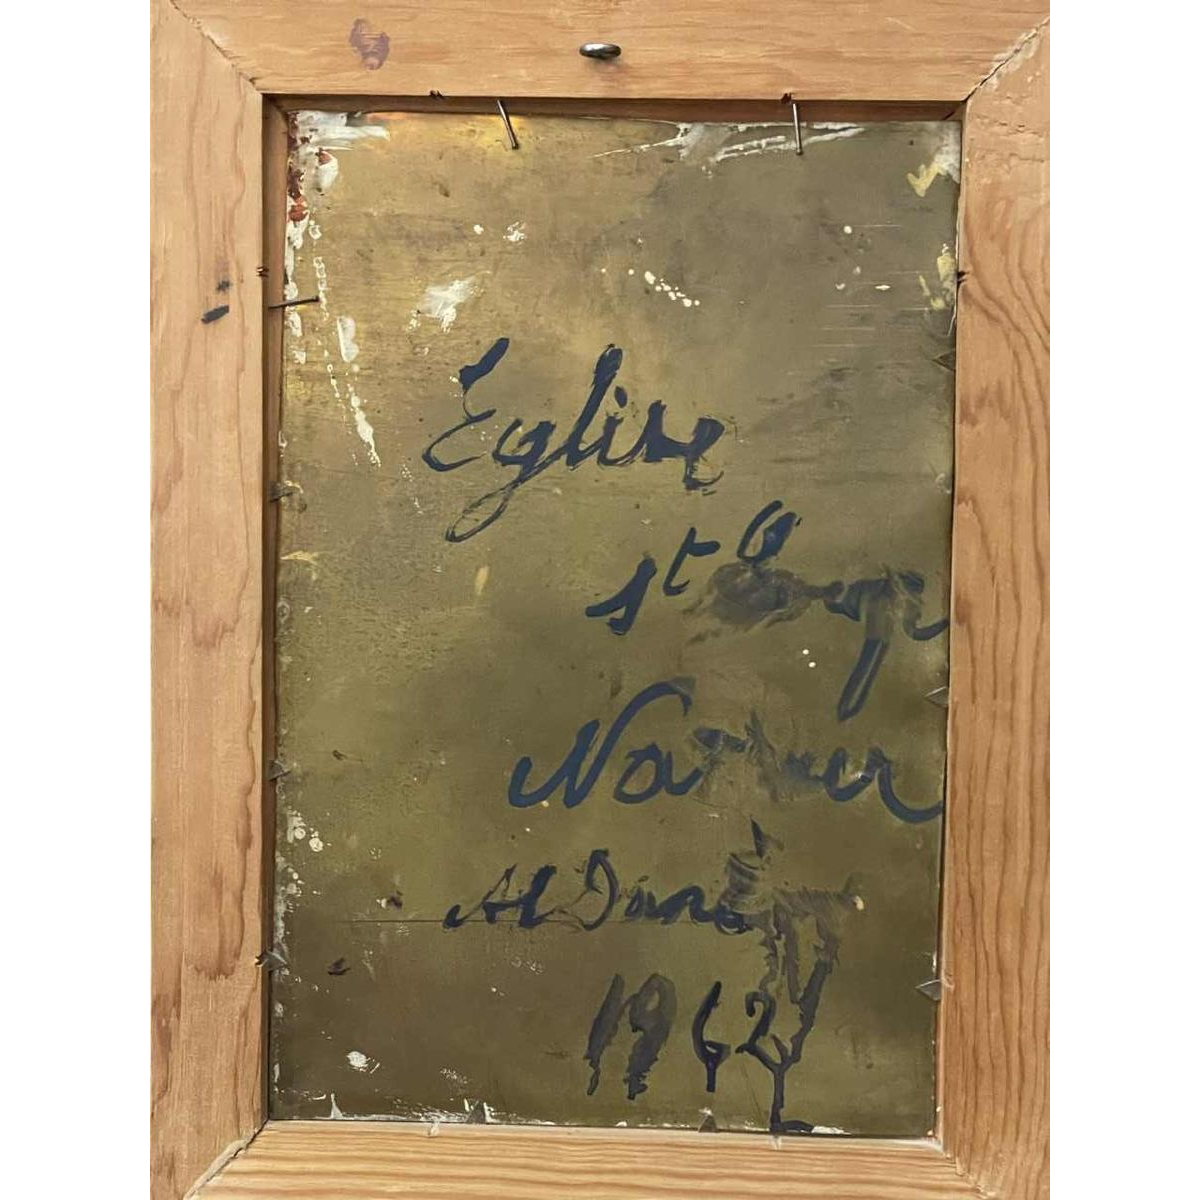 Eglise
st Loup
Namur
Al Dan
1962